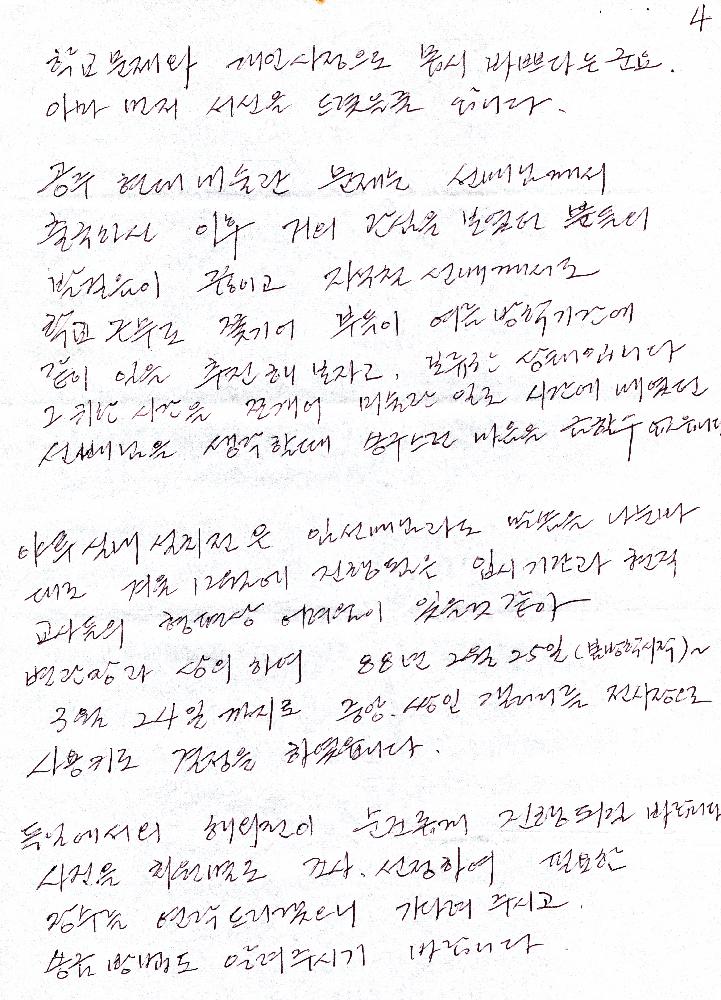 4
학교문제와 개인사정으로 몹시 바쁘다는군요.
아마 먼저 서신을 드렸을줄 압니다.
공주 현대미술관 문제는 선배님께서
출국하신 이후 거의 관심을 보였던 분들의
발걸음이 뜸하고 지석철 선배께서도
학교 근무로 쫓기어 부득이 여름방학기간에
같이 일을 추진해 보자고. 보류한 상태입니다
그 귀한 시간을 쪼개어 미술관 일로 시간에 매였던
선배님을 생각할때 송구스런 마음을 금할수 없습니다
야투 실내 설치전은 임선배님과도 말씀을 나눈바
대로 겨울 12월에 진행됨은 입시기간과 현직
교사들의 형편상 어려움이 있을것 같아
변관장과 상의하여 88년 2월 25일(봄방학시작)~
3월 24일까지로 중앙.쌍인 갤러리를 전시장으로
사용키로 결정을 하였습니다.
독일에서의 해외전이 순조롭게 진행되길 바랍니다
사진을 회원별로 조사.선정하여 필요한
장수를 연락드리겠으니 기다려 주시고.
송금 방법도 알려주시기 바랍니다.